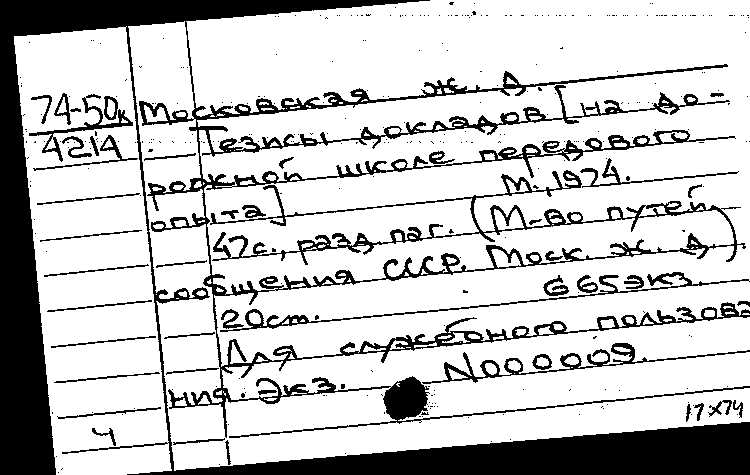 74-50к Московская ж. д.
4214 Тезисы докладов [на до-
рожной школе передового
опыта]. М., 1974.
47с., разд. паг. (М-во путей
сообщения СССР. Моск. ж. д.).
20см. 665экз.
Для служебного пользова
ния. Экз. N000009.
Ч 17 X 74